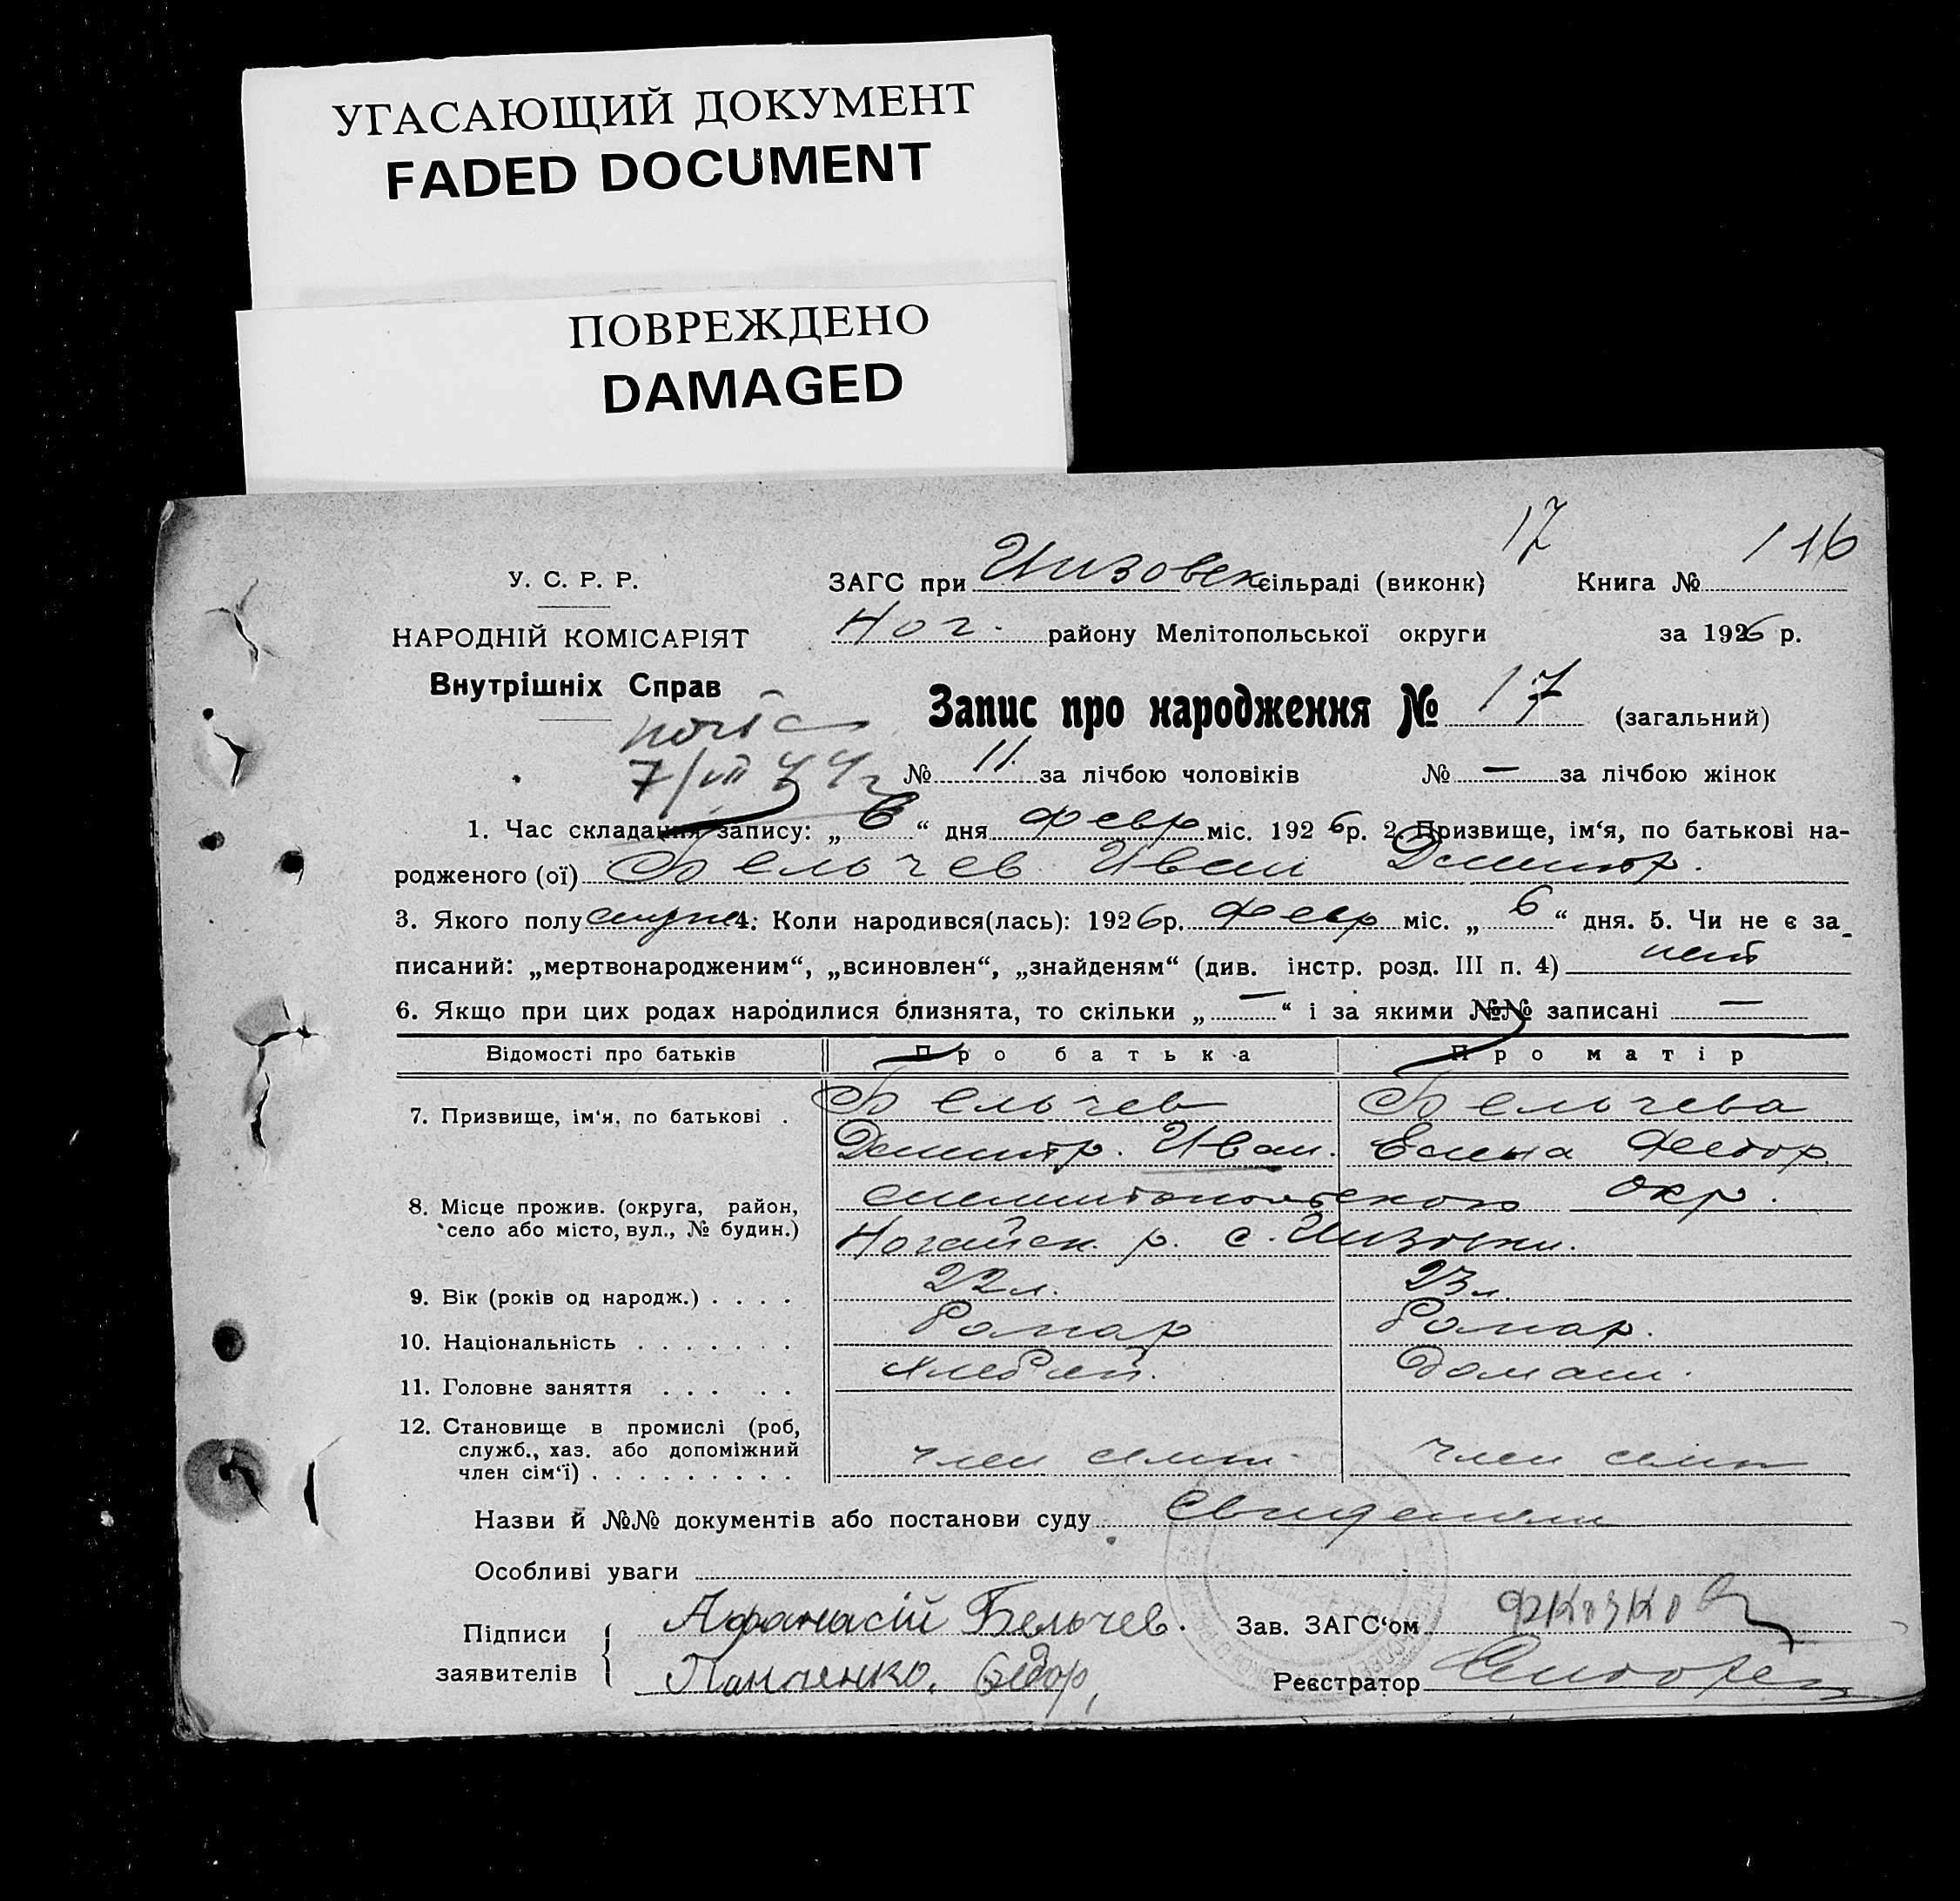 УГАСАЮЩИЙ ДОКУМЕНТ
FADED DOCUMENT
ПОВРЕЖДЕНО
DAMAGED
17 116
У. С. Р. Р. ЗАГС при Инзовск сільраді (виконк) Книга №
НАРОДНІЙ КОМІСАРІЯТ Ног. району Мелітопольської округи за 1926 р.
Внутрішніх Справ
Запис про народження № 17 (загальний)
7/VII 44 г
№ 11 за лічбою чоловіків № — за лічбою жінок
1. Час складання запису: „ 6 “ дня февр міс. 1926 р. 2. Призвище, ім‘я, по батькові на-
родженого (ої) Бельчев Иван Дмитр.
3. Якого полу муж 4. Коли народився(лась): 1926 р. февр міс. „ 6 “ дня. 5. Чи не є за-
писаний: „мертвонародженим“, „всиновлен“, „знайденям“ (див. інстр. розд. III п. 4) нет
6. Якщо при цих родах народилися близнята, то скільки „ — “ і за якими №№ записані —
Відомості про батьків Про батька Про матір
7. Призвище, ім‘я, по батькові . Бельчев Бельчева
Дмитр. Иван. Елена Федор.
8. Місце прожив. (округа, район, Мелитопольского окр.
село або місто, вул., № будин.) Ногайск. р. с. Инзовки.
9. Вік (років од народж.) . . . . 22 л. 23 л.
10. Національність . . . . . . . Болгар Болгар.
11. Головне заняття . . . . . Хлебоп. Домаш.
12. Становище в промислі (роб,
служб., хаз. або допоміжний
член сім‘ї) . . . . . . . . . член семи член семи
Назви й №№ документів або постанови суду
Особливі уваги
Підписи Афанасій Бельчев. Зав. ЗАГС‘ом
заявителів Панченко, Федор, Реєстратор